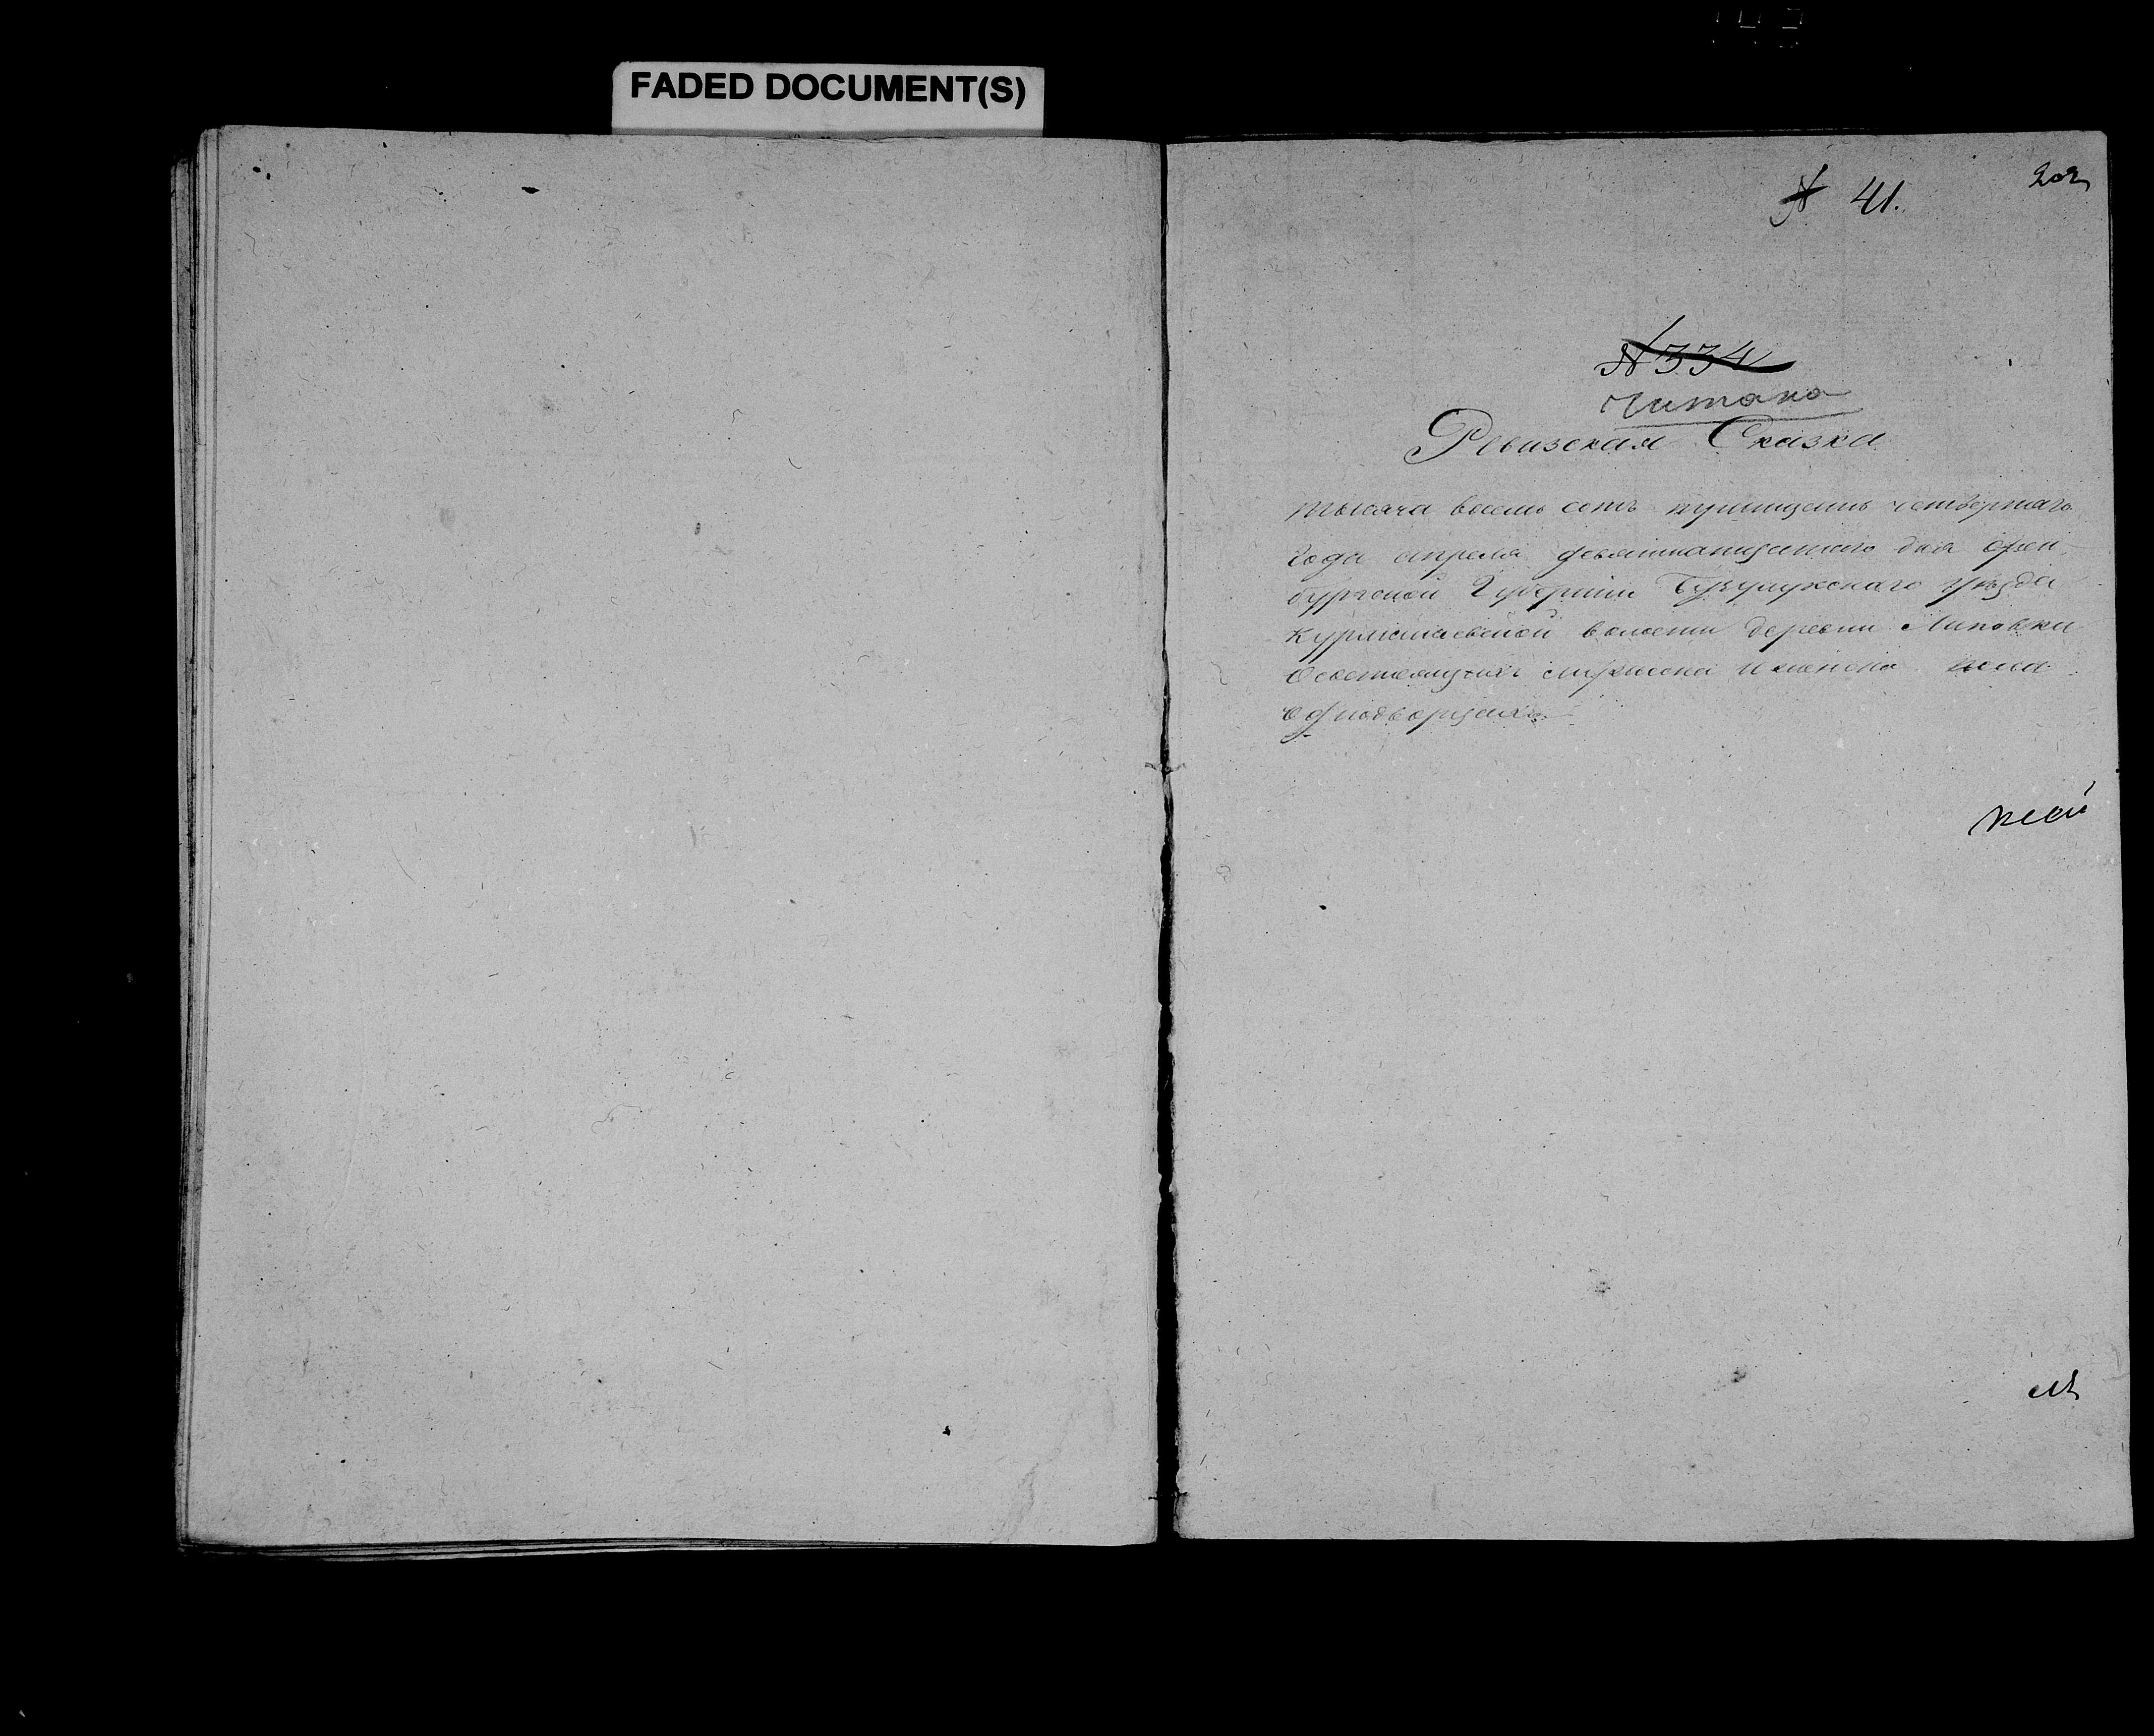 FADED DOCUMENT(S)
202
№ 41.
№ 334
Читано
Ревизская Сказка
тысяча восемь сотъ тритцать четвертаго
года апреля девятнатцатаго дня Орен
бургской Губернии Бузулукскаго уезда
Курманаевской волости деревни Липовки
о состоящихъ мужеска и женска пола
однодворцахъ